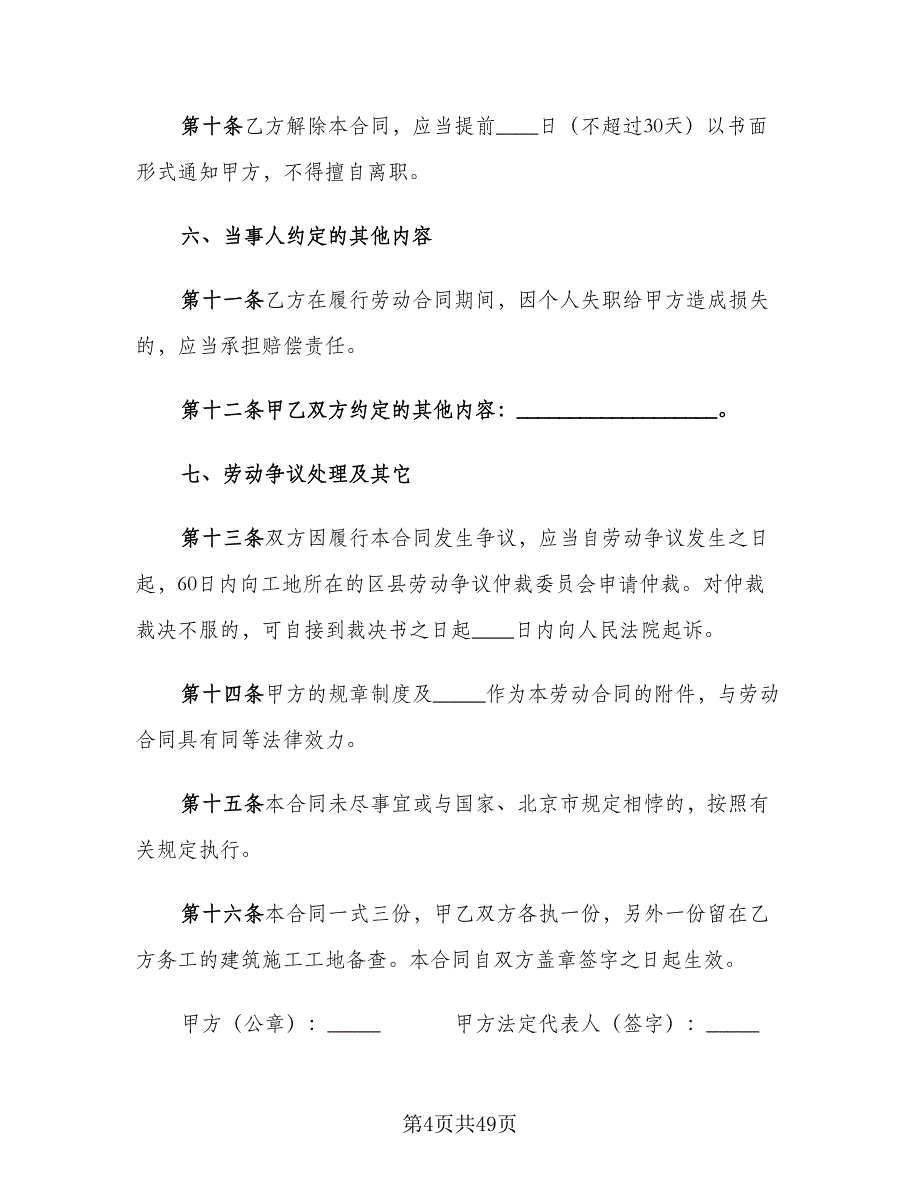 第十条乙方解除本合同，应当提前____日（不超过30天）以书面
形式通知甲方，不得擅自离职。
六、当事人约定的其他内容
第十一条乙方在履行劳动合同期间，因个人失职给甲方造成损失
的，应当承担赔偿责任。
第十二条甲乙双方约定的其他内容：___________________。
七、劳动争议处理及其它
第十三条双方因履行本合同发生争议，应当自劳动争议发生之日
起，60日内向工地所在的区县劳动争议仲裁委员会申请仲裁。对仲裁
裁决不服的，可自接到裁决书之日起____日内向人民法院起诉。
第十四条甲方的规章制度及_____作为本劳动合同的附件，与劳动
合同具有同等法律效力。
第十五条本合同未尽事宜或与国家、北京市规定相悖的，按照有
关规定执行。
第十六条本合同一式三份，甲乙双方各执一份，另外一份留在乙
方务工的建筑施工工地备查。本合同自双方盖章签字之日起生效。
甲方（公章）：_____ 甲方法定代表人（签字）：_____
第4页共49页